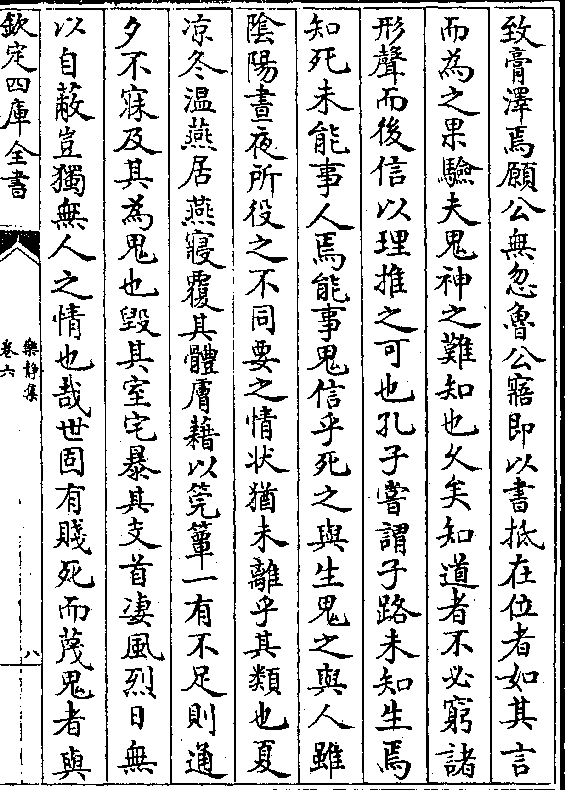 致膏澤焉願公無忽魯公寤即以書抵在位者如其言
而為之果驗夫鬼神之難知也久矣知道者不必窮諸
形聲而後信以理推之可也孔子嘗謂子路未知生焉
知死未能事人焉能事鬼信乎死之與生鬼之與人雖
陰陽晝夜所役之不同要之情狀猶未離乎其類也夏
凉冬温燕居燕寢覆其體膚藉以筦簞一有不足則通
夕不寐及其為鬼也毀其室宅暴其支首凄風烈日無
以自蔽豈獨無人之情也哉世固有賤死而蔑鬼者與
欽定四庫全書
樂静集
卷六
八